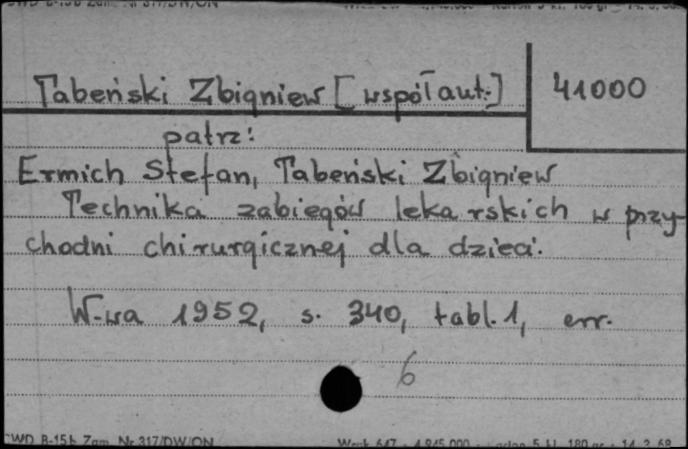 Tabeński Zbigniew [współaut.] 41000
patrz:
Ermich Stefan, Tabeński Zbigniew
Technika zabiegów lekarskich w przy-
chodni chirurgicznej dla dzieci.
W-wa 1952, s. 340, tabl. 1, err.
6
CWD B-15b Zam. Nr 317/DW/ON